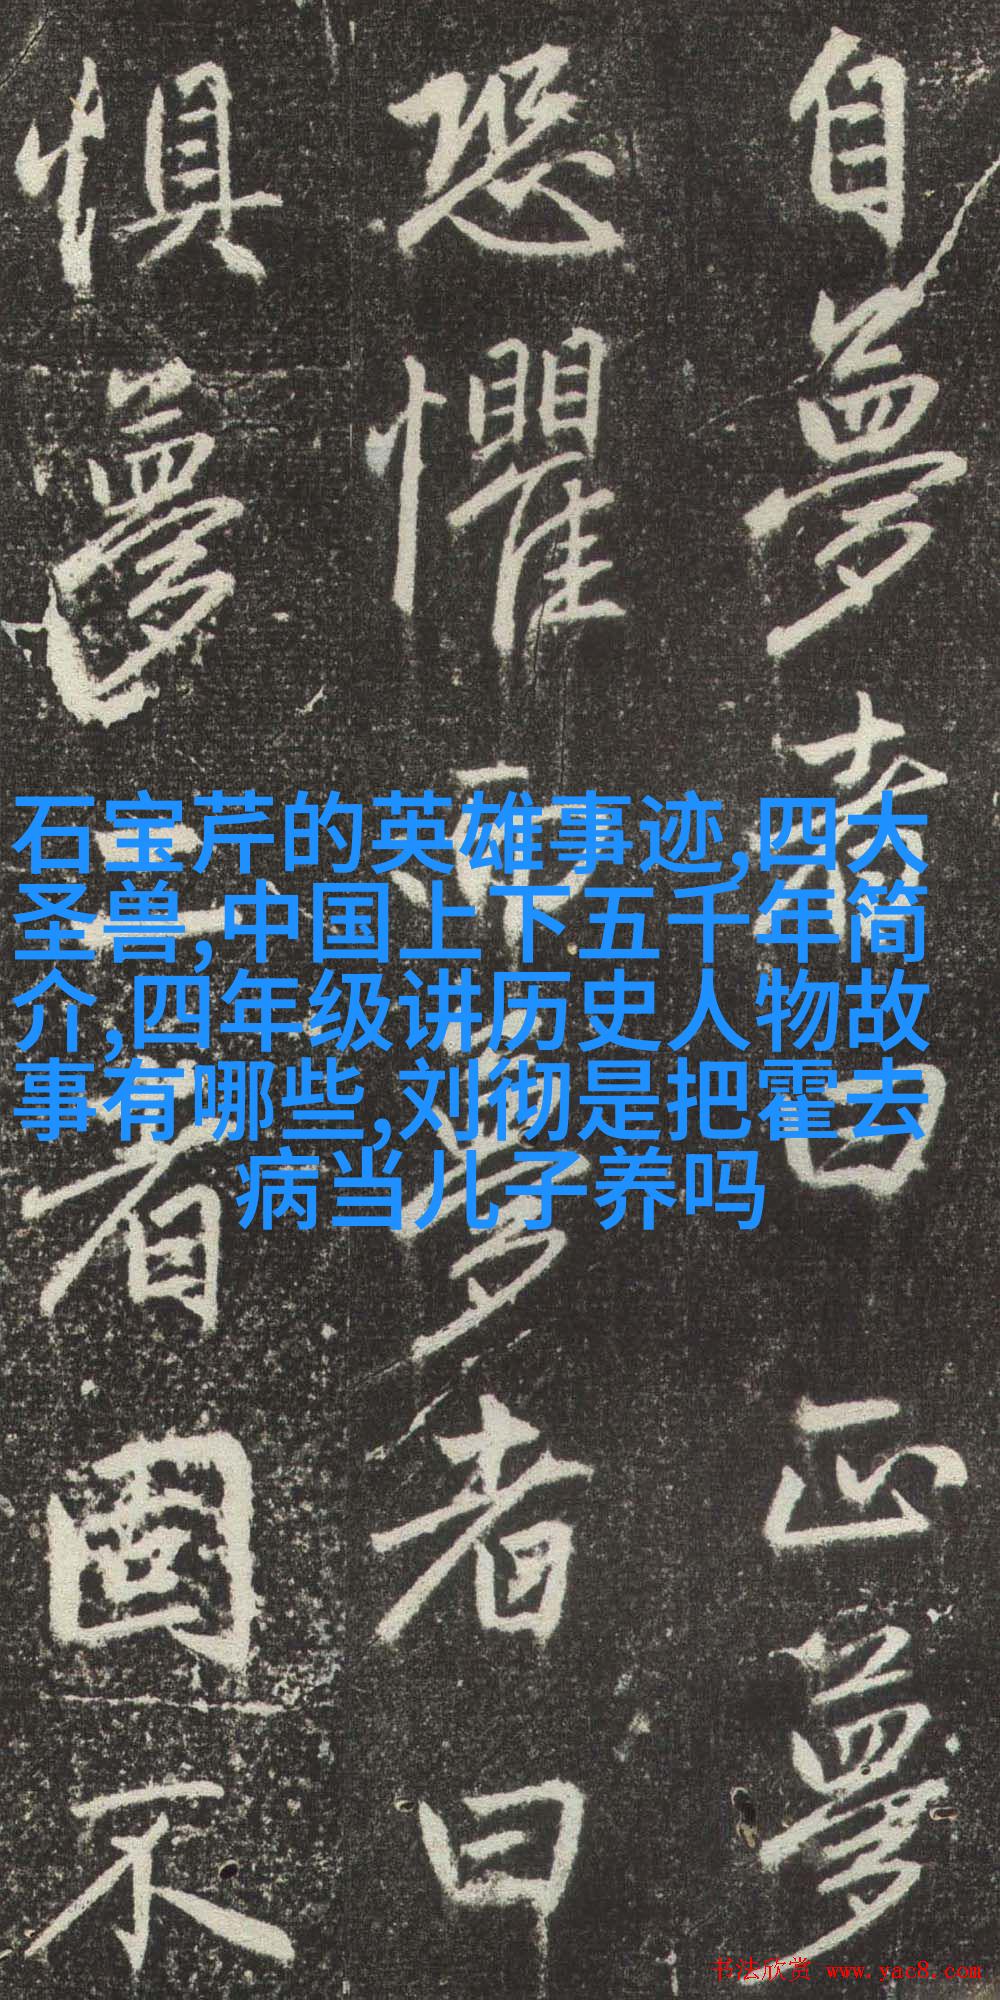 石宝芹的英雄事迹,四大
圣兽,中国上下五千年简
介,四年级讲历史人物故
事有哪些,刘彻是把霍去
病当儿子养吗
自夢者曰正夢
恐懼而夢者曰
惧夢二者固不
书法欣赏 www.yac8.com